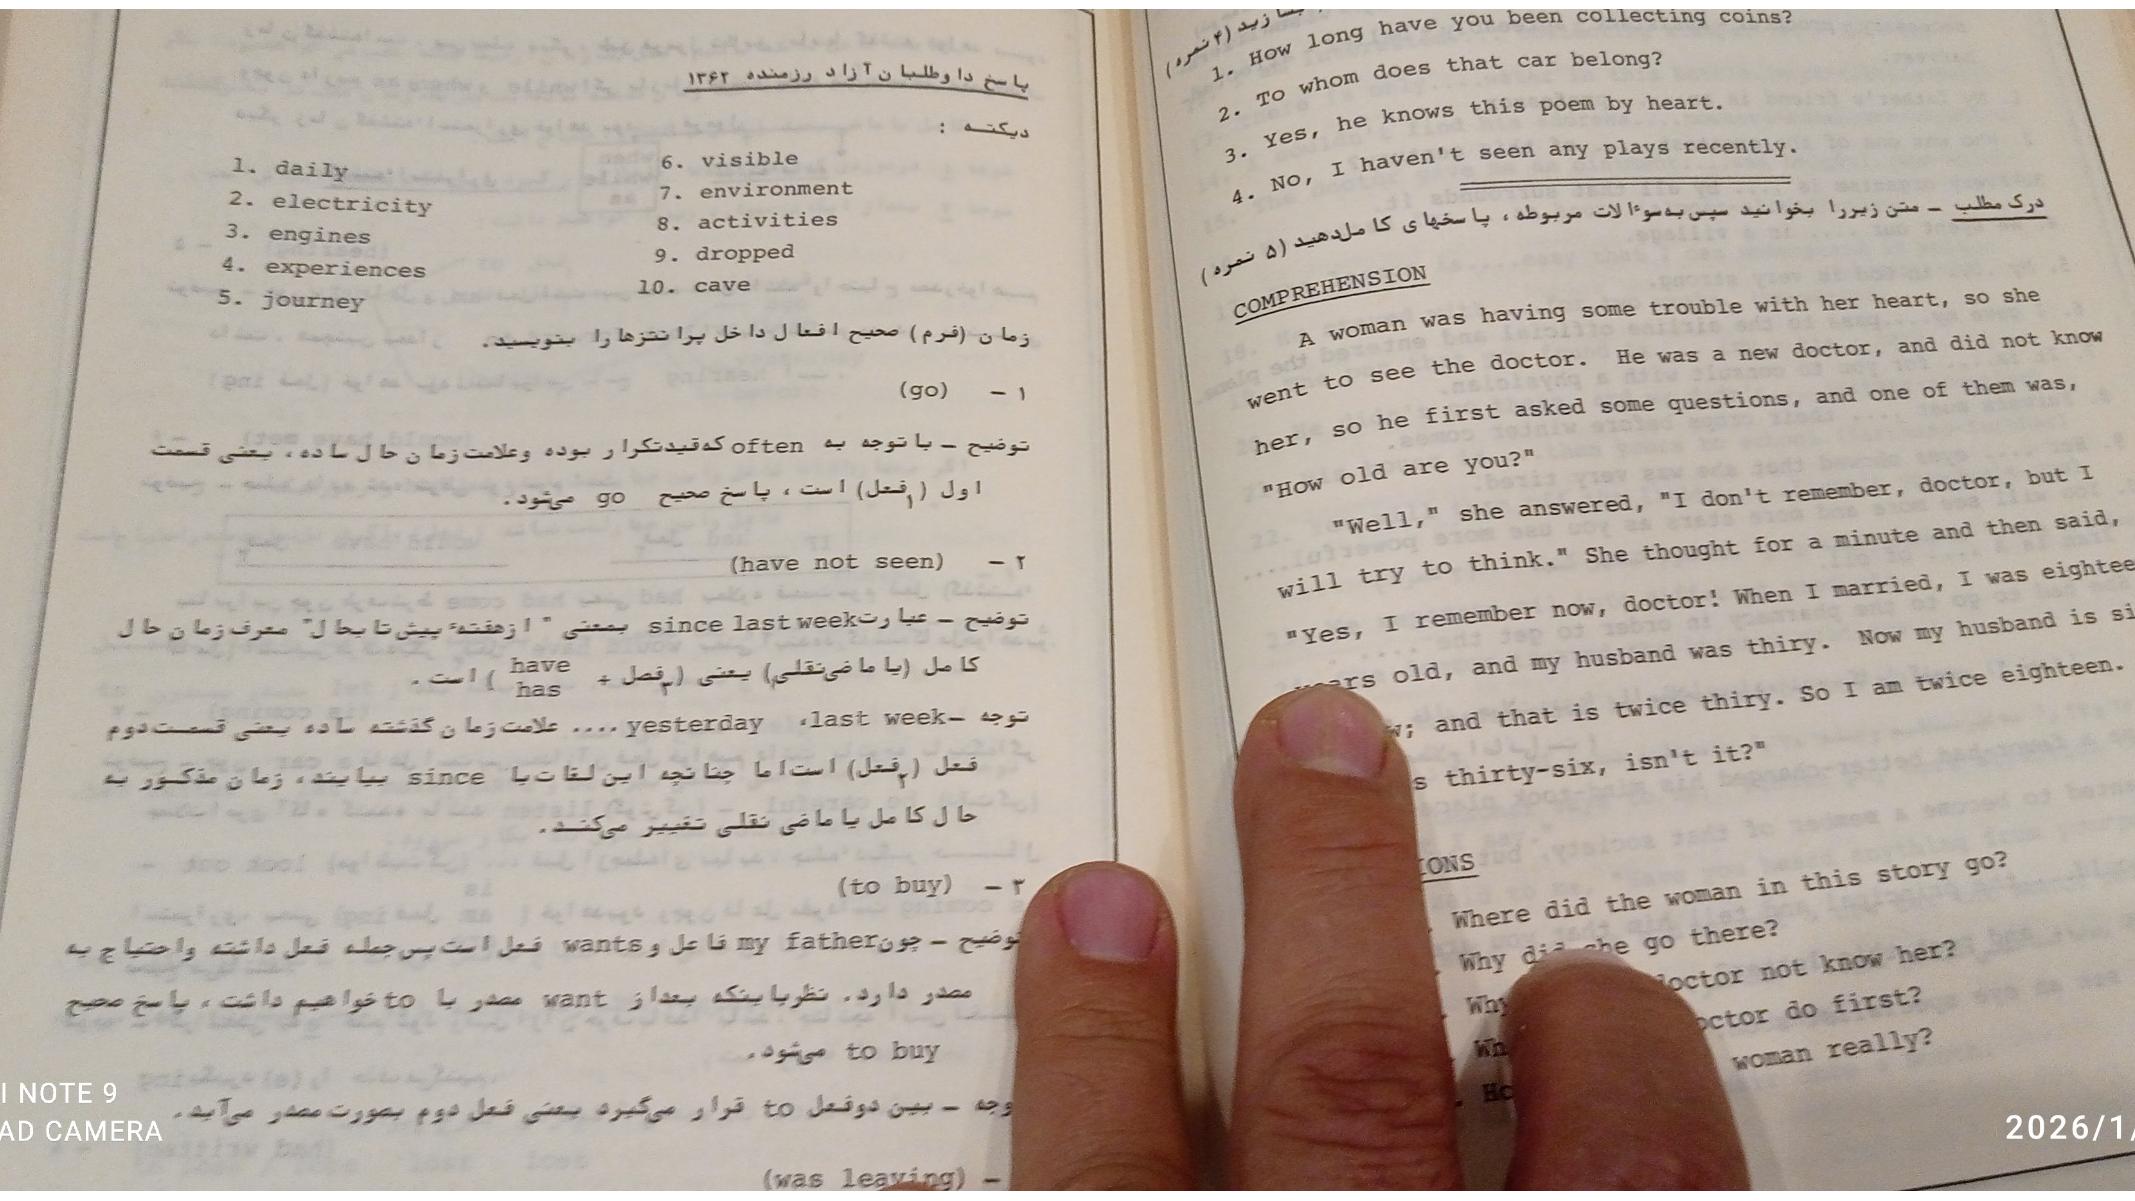 پاسخ داوطلبان آزاد رزمنده ۱۳۶۲
دیکته :
1. daily
2. electricity
3. engines
4. experiences
5. journey
6. visible
7. environment
8. activities
9. dropped
10. cave
زمان (فرم) صحیح افعال داخل پرانتزها را بنویسید.
۱ – (go)
توضیح – با توجه به often که قید تکرار بوده وعلامت زمان حال ساده، یعنی قسمت
اول (فعل۱) است، پاسخ صحیح go می‌شود.
۲ – (have not seen)
توضیح – عبارت since last week بمعنی "ازهفتهٔ پیش تا بحال" معرف زمان حال
کامل (یا ماضی‌نقلی) یعنی (فصل۳ + have has) است.
توجه – last week، yesterday .... علامت زمان گذشته ساده یعنی قسمت دوم
فعل (فعل۲) است اما چنانچه این لغات با since بیایند، زمان مذکور به
حال کامل یا ماضی نقلی تغییر می‌کنند.
۳ – (to buy)
توضیح – چون my father فاعل و wants فعل است پس جمله فعل داشته واحتیاج به
مصدر دارد. نظر باینکه بعد از want مصدر با to خواهیم داشت، پاسخ صحیح
to buy می‌شود.
وجه – بین دوفعل to قرار می‌گیرد یعنی فعل دوم بصورت مصدر می‌آید.
– (was leaving)
زید (۴ نمره)
1. How long have you been collecting coins?
2. To whom does that car belong?
3. Yes, he knows this poem by heart.
4. No, I haven't seen any plays recently.
درک مطلب – متن زیررا بخوانید سپس به‌سوءالات مربوطه، پاسخهای کامل‌دهید (۵ نمره)
COMPREHENSION
A woman was having some trouble with her heart, so she
went to see the doctor. He was a new doctor, and did not know
her, so he first asked some questions, and one of them was,
"How old are you?"
"Well," she answered, "I don't remember, doctor, but I
will try to think." She thought for a minute and then said,
"Yes, I remember now, doctor! When I married, I was eightee
years old, and my husband was thiry. Now my husband is si
w; and that is twice thiry. So I am twice eighteen.
s thirty-six, isn't it?"
IONS
. Where did the woman in this story go?
. Why did she go there?
. Why doctor not know her?
. Wh octor do first?
. Ho woman really?
I NOTE 9
AD CAMERA
2026/1/